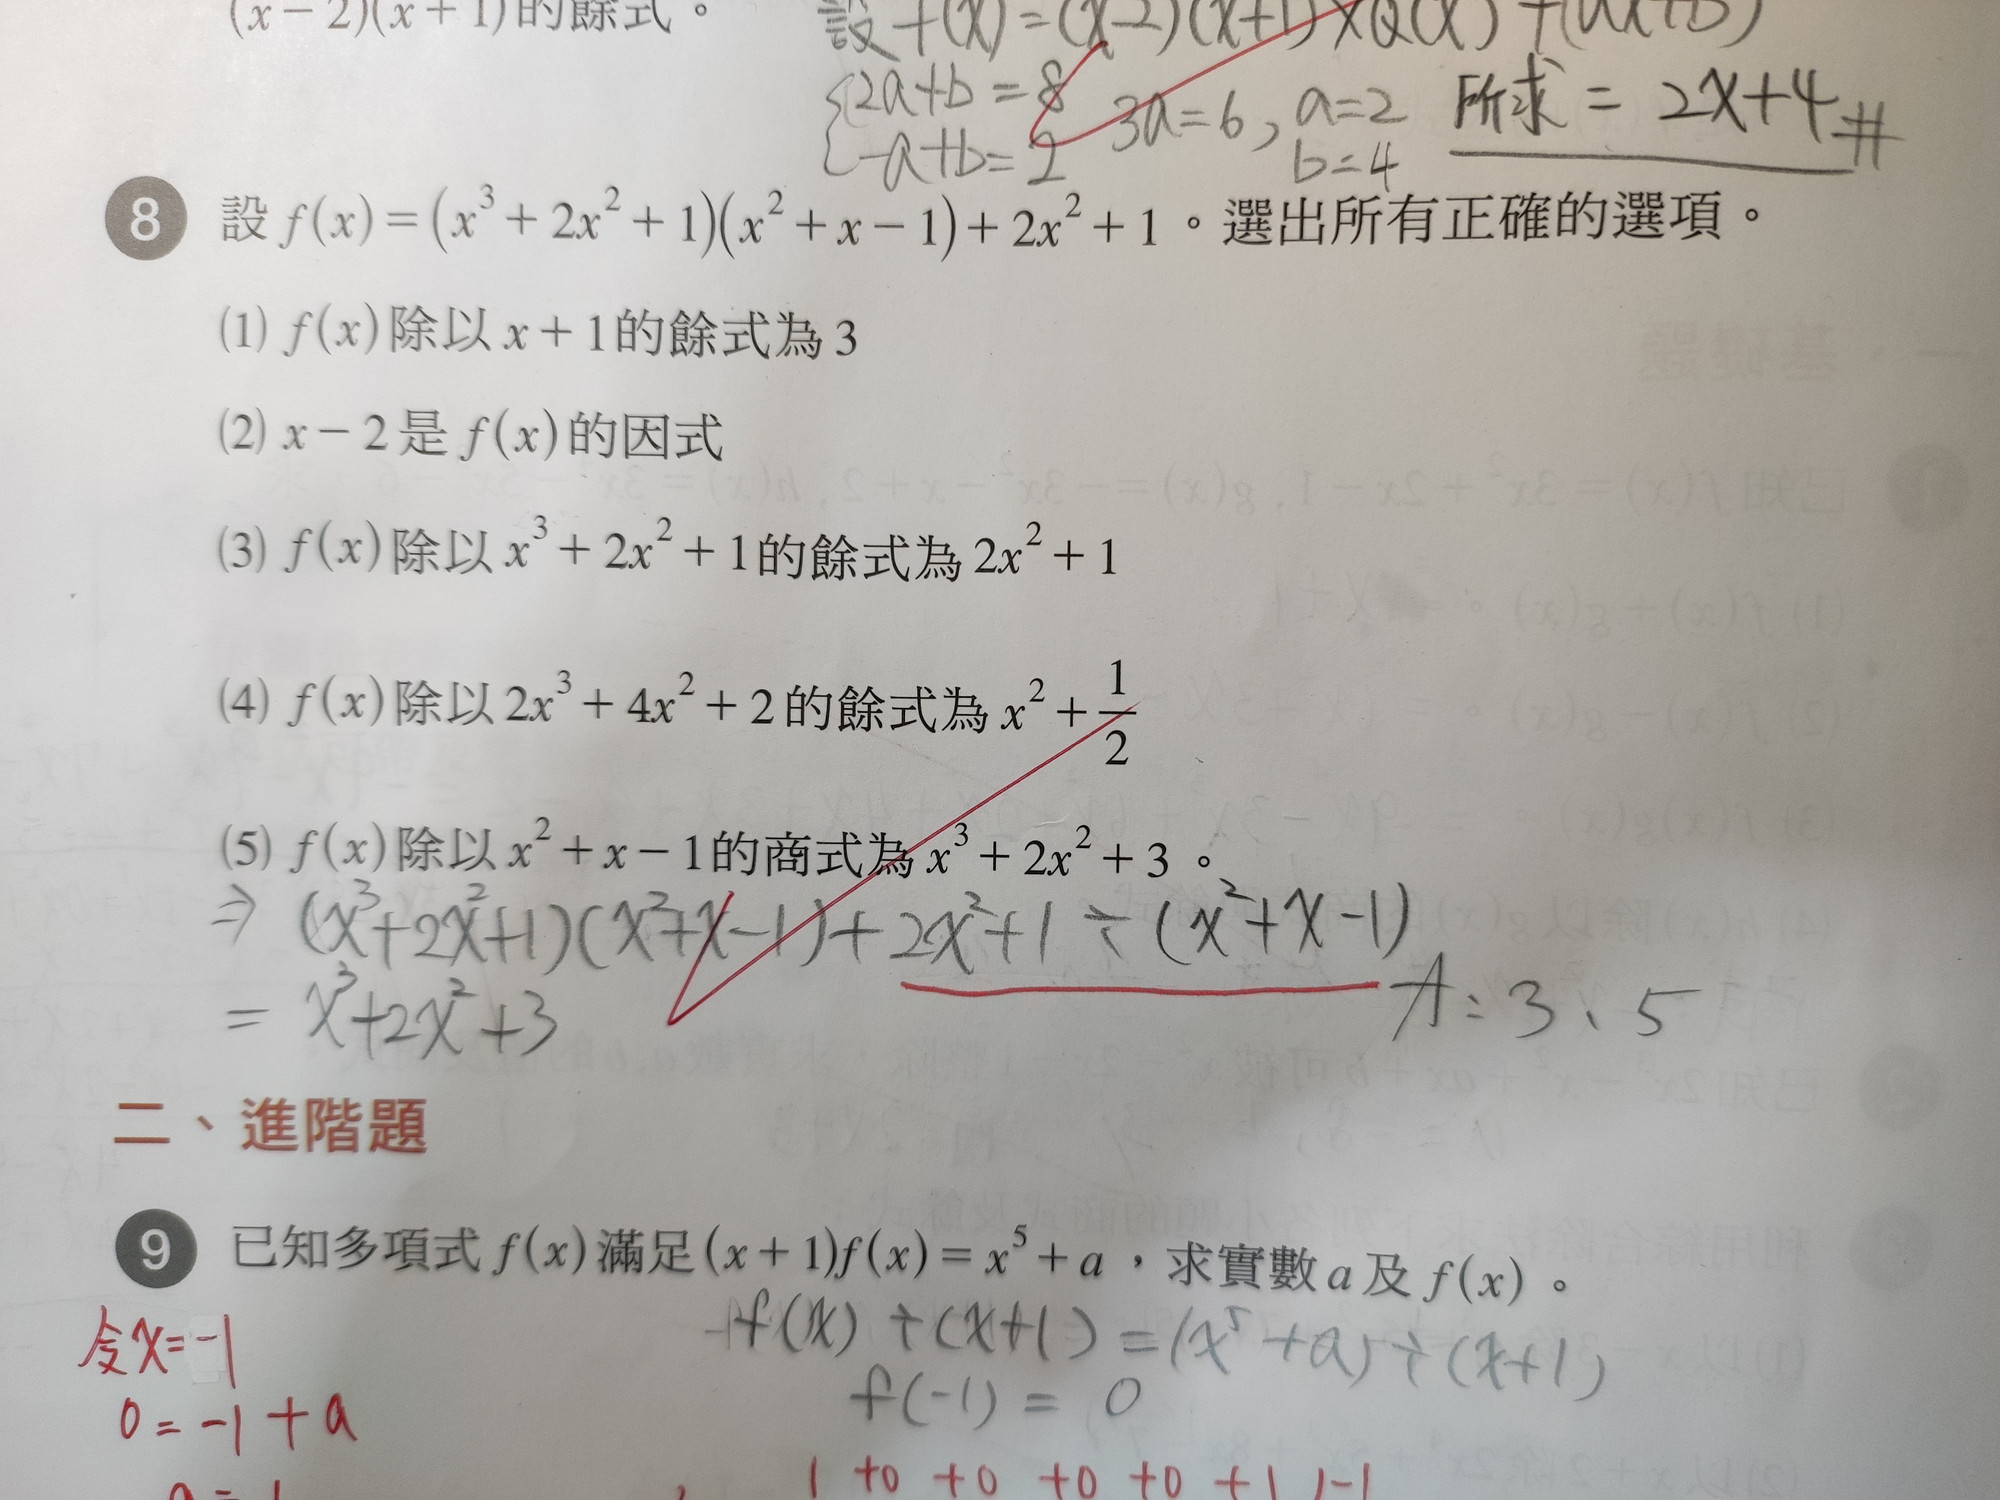 (x－2)(x＋1)的餘式。
設 f(x)=(x-2)(x+1)×Q(x)+(ax+b)
{2a+b=8
-a+b=2
3a=6, a=2
b=4
所求=2x+4#
8 設 f(x)=(x³+2x²+1)(x²+x-1)+2x²+1。選出所有正確的選項。
(1) f(x)除以 x+1的餘式為3
(2) x-2是 f(x)的因式
(3) f(x)除以 x³+2x²+1的餘式為 2x²+1
(4) f(x)除以 2x³+4x²+2的餘式為 x²+1/2
(5) f(x)除以 x²+x-1的商式為 x³+2x²+3。
⇒ (x³+2x²+1)(x²+x-1)+2x²+1÷(x²+x-1)
= x³+2x²+3
A:3、5
二、進階題
9 已知多項式 f(x)滿足(x+1)f(x)=x⁵+a，求實數a及 f(x)。
令x=-1
0=-1+a
a=1
f(x)÷(x+1)=(x⁵+a)÷(x+1)
f(-1)=0
1 +0 +0 +0 +0 +1 )-1